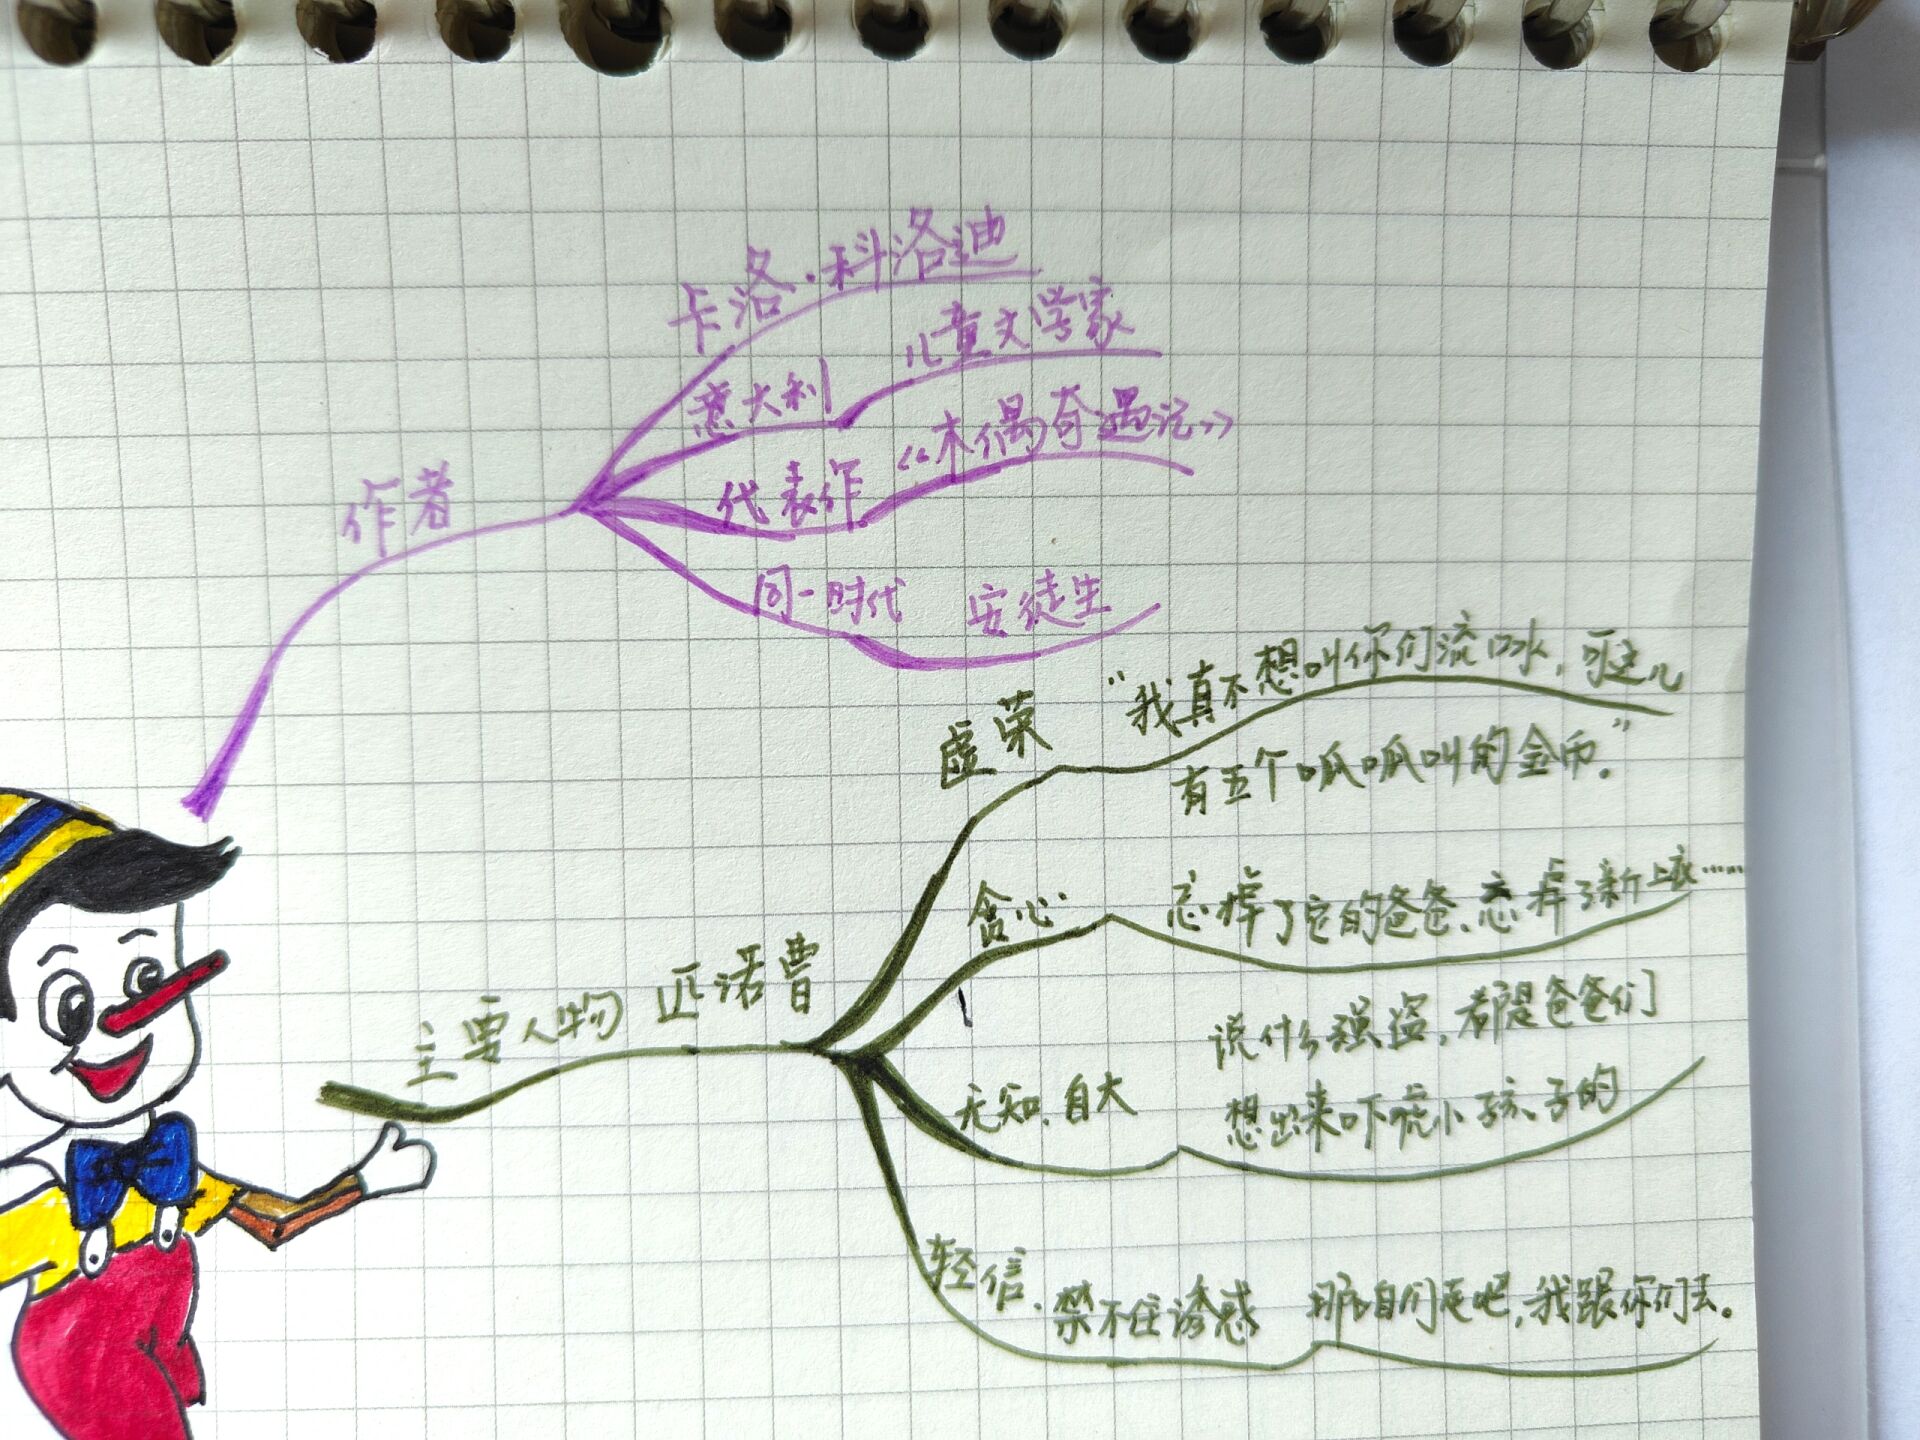 作者
卡洛·科洛迪
意大利 儿童文学家
代表作 《木偶奇遇记》
同一时代 安徒生
主要人物 匹诺曹
虚荣 “我真不想叫你们流口水，可这儿
有五个呱呱叫的金币。”
贪心 忘掉了它的爸爸、忘掉了新上衣……
无知、自大 说什么强盗，都是爸爸们
想出来吓唬小孩子的
轻信、禁不住诱惑 那咱们走吧，我跟你们去。